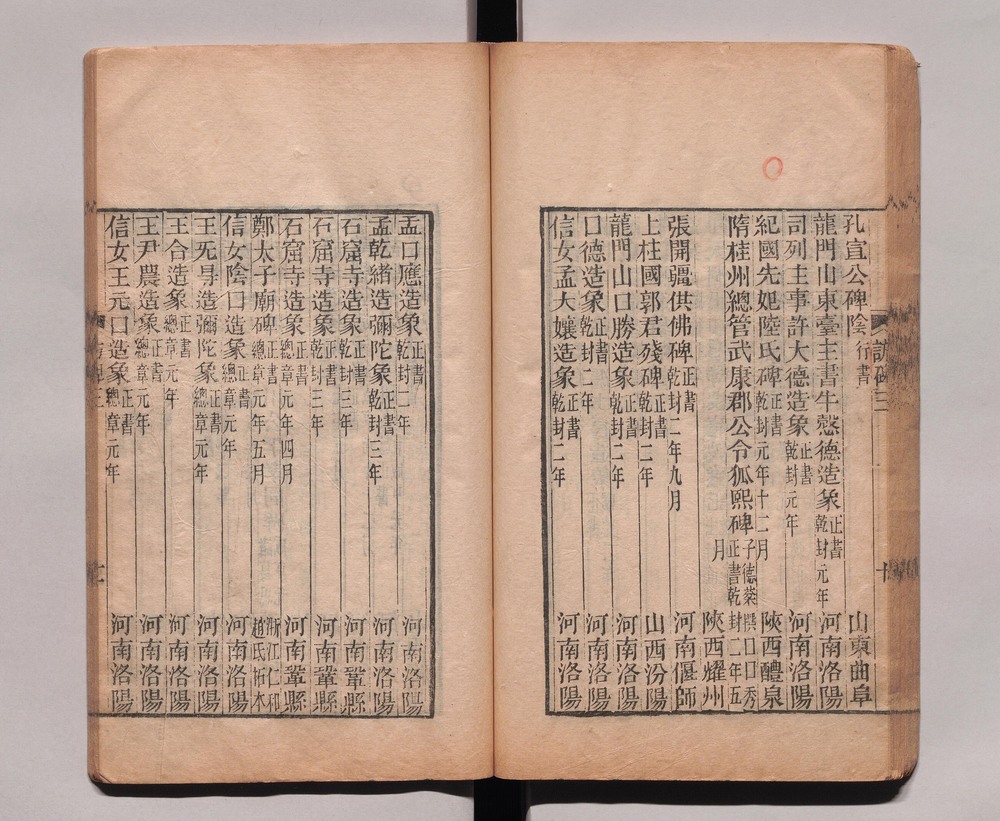 孔宣公碑陰 行書 山東曲阜
龍門山東臺主書牛懿德造象 正書 乾封元年 河南洛陽
司列主事許大德造象 正書 乾封元年 河南洛陽
紀國先妃陸氏碑 正書 乾封元年十二月 陝西醴泉
隋桂州總管武康郡公令狐熙碑 子德棻撰口口秀 正書乾封二年五
月 陝西耀州
張開疆供佛碑 正書 乾封二年九月 河南偃師
上柱國郭君殘碑 正書 乾封二年 山西汾陽
龍門山口勝造象 正書 乾封二年 河南洛陽
口德造象 正書 乾封二年 河南洛陽
信女孟大孃造象 正書 乾封二年 河南洛陽
孟口應造象 正書 乾封二年 河南洛陽
孟乾緒造彌陀象 正書 乾封三年 河南洛陽
石窟寺造象 正書 乾封三年 河南鞏縣
石窟寺造象 正書 乾封三年 河南鞏縣
石窟寺造象 正書 總章元年四月 河南鞏縣
鄭太子廟碑 正書 總章元年五月 浙江仁和 趙氏拓本
信女陰口造象 正書 總章元年 河南洛陽
王旡㝵造彌陀象 正書 總章元年 河南洛陽
王合造象 正書 總章元年 河南洛陽
王尹農造象 正書 總章元年 河南洛陽
信女王元口造象 正書 總章元年 河南洛陽